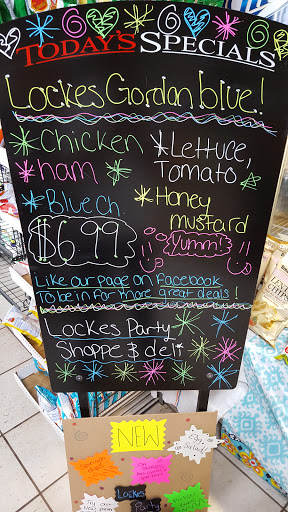 TODAY'S SPECIALS
Lockes Gordan blue!
Chicken
Lettuce,
Tomato
ham
Blue Ch.
Honey
mustard
$6.99
Yumm!
Like our page on Facebook
To be in for more great deals!
Lockes Party
Shoppe & deli
NEW
Egg
Salad
Try our
Lockes
Party